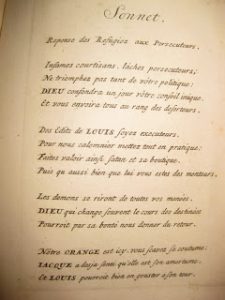 Sonnet.
Reponse des Refugiez aux Persecuteurs.
Infames courtizans, lâches persecuteurs,
Ne triomphez pas tant de vôtre politique:
DIEU confondra un jour vôtre conseil inique,
Et vous envoira tous au rang des deserteurs.
Des Edits de LOUIS soyez executeurs.
Pour nous calomnier mettez tout en pratique:
Faites valoir ainsi satan et sa boutique,
Puis qu aussi bien que lui vous estes des menteurs.
Les demons se riront de toutes vos menées.
DIEU qui change souvent le cours des destinées
Pourroit par sa bonté nous donner du retour.
Nôtre ORANGE est icy, vous sçavez sa coutume:
IACQUE a deja senti qu'elle est son amertume,
Et LOUIS pourroit bien en gouter a son tour.